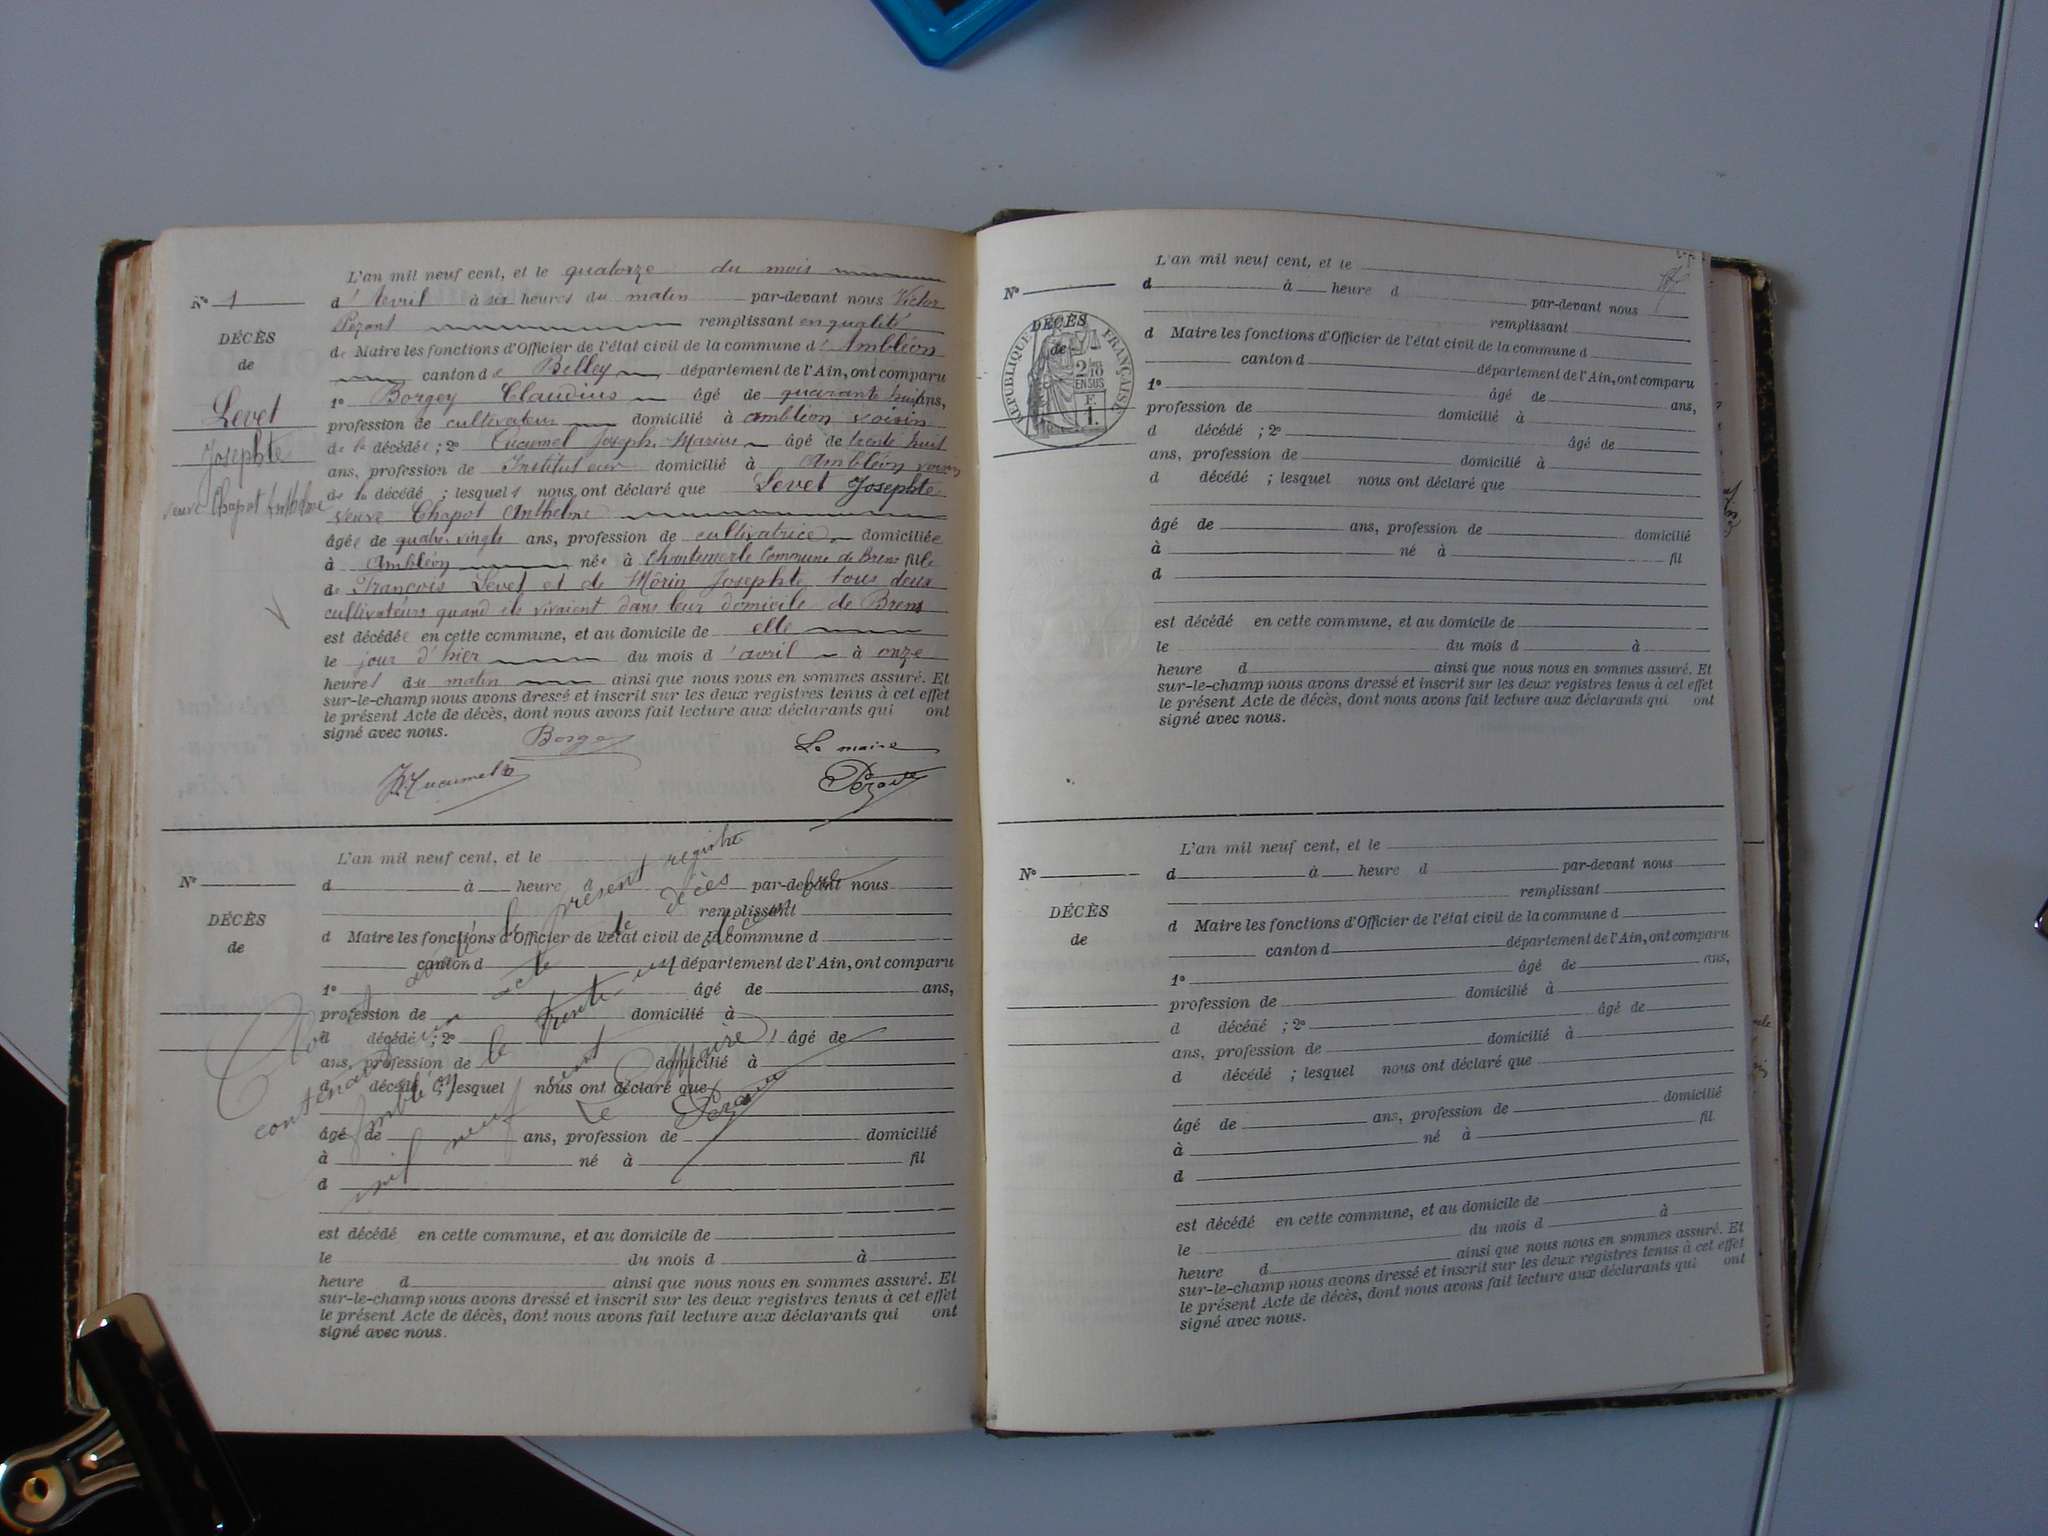 L'an mil neuf cent, et le quatorze du mois
N° 1
d'Avril à six heures du matin par-devant nous Victor
Pezant remplissant en qualité
DÉCÈS
de Maire les fonctions d'Officier de l'état civil de la commune d'Ambléon
de
canton de Belley département de l'Ain, ont comparu
1° Borgey Claudius âgé de quarante huit ans,
Levet
profession de cultivateur domicilié à Ambléon voisin
Josephte
de la décédée ; 2° Cucumel Joseph Marius âgé de trente huit
ans, profession de Instituteur domicilié à Ambléon voisin
veuve Chapot Anthelme
de la décédé ; lesquels nous ont déclaré que Levet Josephte
veuve Chapot Anthelme
âgée de quatre vingts ans, profession de cultivatrice domiciliée
à Ambléon née à Chantemerle Commune de Brens fille
de François Levet et de Morin Josephte tous deux
cultivateurs quand ils vivaient dans leur domicile de Brens
est décédée en cette commune, et au domicile de elle
le jour d'hier du mois d'avril à onze
heures du matin ainsi que nous nous en sommes assuré. Et
sur-le-champ nous avons dressé et inscrit sur les deux registres tenus à cet effet
le présent Acte de décès, dont nous avons fait lecture aux déclarants qui ont
signé avec nous.
Borgey
Le maire
Cucumel
Pezant
L'an mil neuf cent, et le
N°
d à heure d par-devant nous
remplissant
DÉCÈS
de
d Maire les fonctions d'Officier de l'état civil de la commune d
canton d département de l'Ain, ont comparu
1° âgé de ans,
profession de domicilié à
d décédé ; 2° âgé de
ans, profession de domicilié à
d décédé ; lesquel nous ont déclaré que
âgé de ans, profession de domicilié
à né à fil
d
est décédé en cette commune, et au domicile de
le du mois d à
heure d ainsi que nous nous en sommes assuré. Et
sur-le-champ nous avons dressé et inscrit sur les deux registres tenus à cet effet
le présent Acte de décès, dont nous avons fait lecture aux déclarants qui ont
signé avec nous.
Clos et arrêté le présent registre
contenant un acte de décès
Ambléon le trente-un décembre
mil neuf cent
Le Maire
Pezant
L'an mil neuf cent, et le
N°
d à heure d par-devant nous
remplissant
DÉCÈS
de
RÉPUBLIQUE FRANÇAISE
2/10
EN SUS
F.
1.
d Maire les fonctions d'Officier de l'état civil de la commune d
canton d département de l'Ain, ont comparu
1° âgé de ans,
profession de domicilié à
d décédé ; 2° âgé de
ans, profession de domicilié à
d décédé ; lesquel nous ont déclaré que
âgé de ans, profession de domicilié
à né à fil
d
est décédé en cette commune, et au domicile de
le du mois d à
heure d ainsi que nous nous en sommes assuré. Et
sur-le-champ nous avons dressé et inscrit sur les deux registres tenus à cet effet
le présent Acte de décès, dont nous avons fait lecture aux déclarants qui ont
signé avec nous.
L'an mil neuf cent, et le
N°
d à heure d par-devant nous
remplissant
DÉCÈS
de
d Maire les fonctions d'Officier de l'état civil de la commune d
canton d département de l'Ain, ont comparu
1° âgé de ans,
profession de domicilié à
d décédé ; 2° âgé de
ans, profession de domicilié à
d décédé ; lesquel nous ont déclaré que
âgé de ans, profession de domicilié
à né à fil
d
est décédé en cette commune, et au domicile de
le du mois d à
heure d ainsi que nous nous en sommes assuré. Et
sur-le-champ nous avons dressé et inscrit sur les deux registres tenus à cet effet
le présent Acte de décès, dont nous avons fait lecture aux déclarants qui ont
signé avec nous.